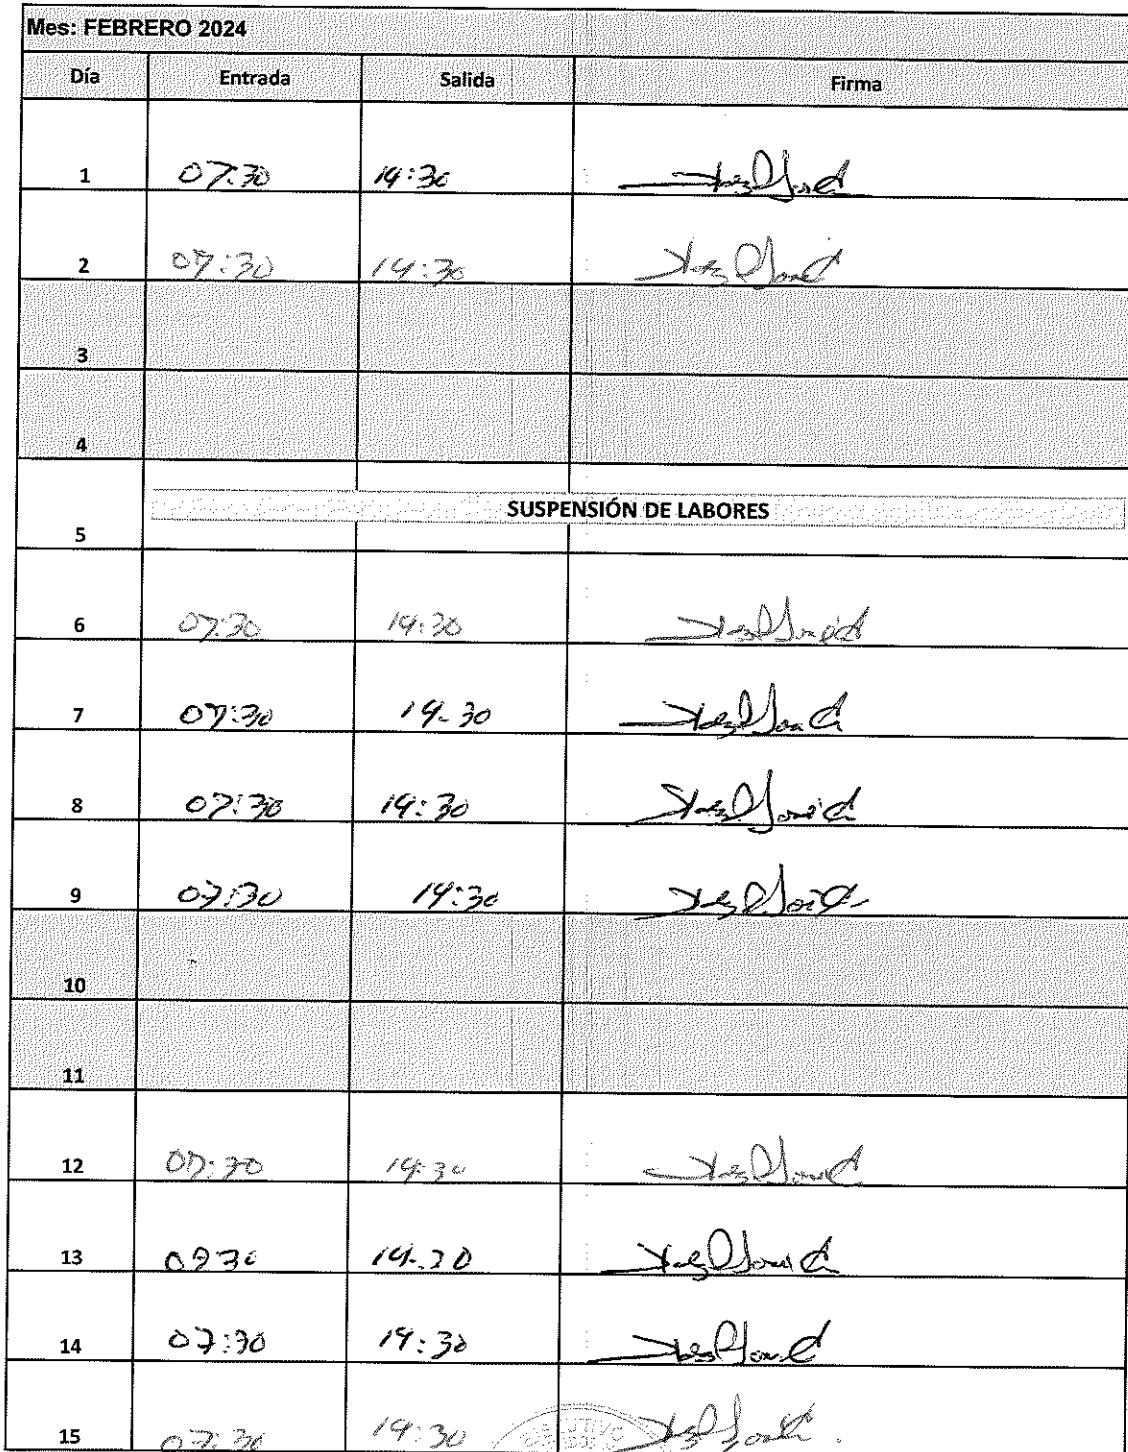 Mes: FEBRERO 2024
Día Entrada Salida Firma
1 07:30 14:30
2 07:30 14:30
3
4
5 SUSPENSIÓN DE LABORES
6 07:30 14:30
7 07:30 14-30
8 07:30 14:30
9 07:30 14:30
10
11
12 07:30 14:30
13 0730 14-30
14 07:30 14:30
15 07:30 14:30